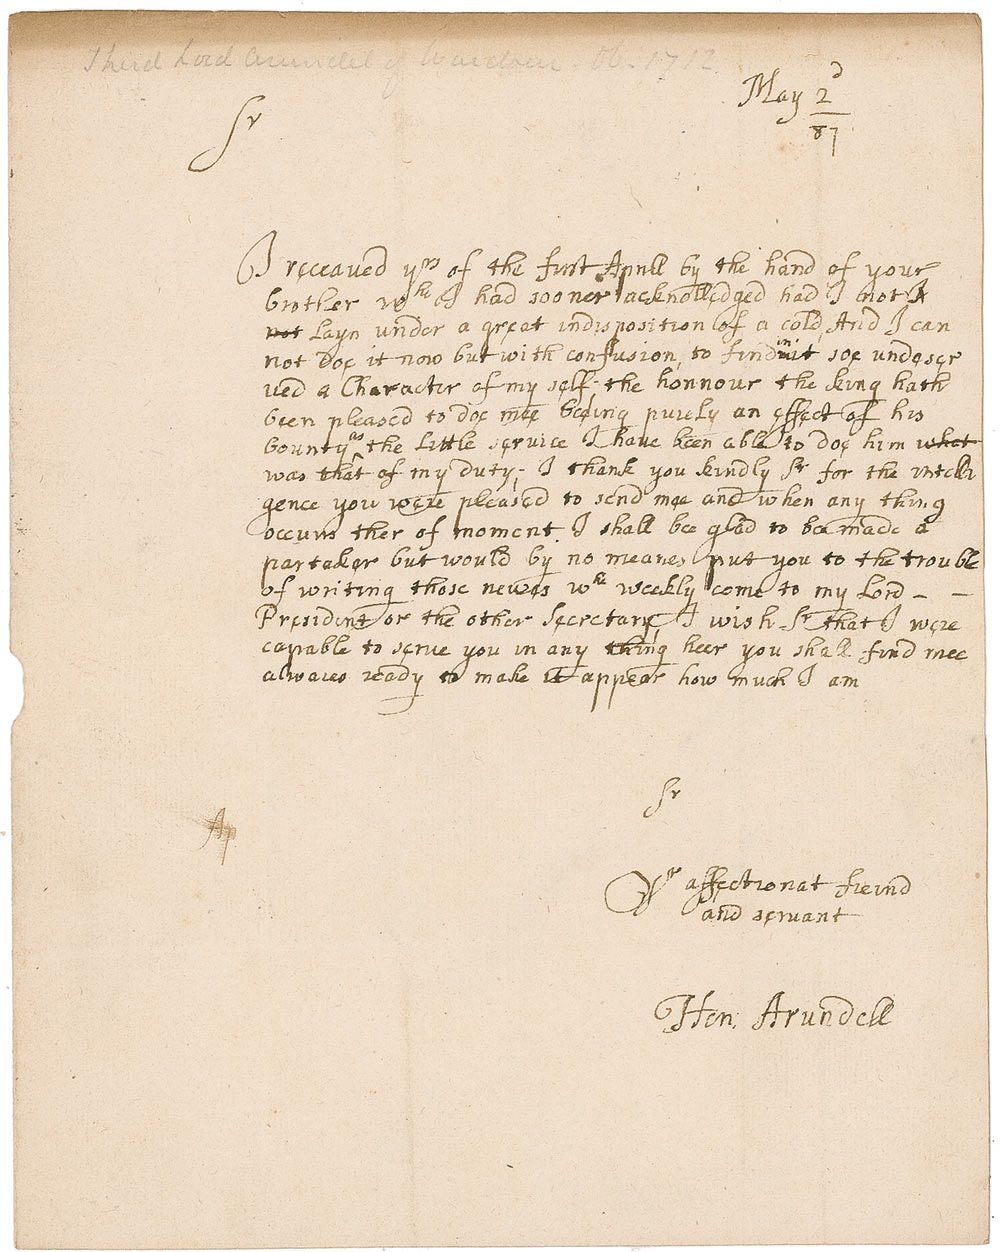 Third Lord Arundel of Wardour. Ob. 1712.
May 2d
87
Sr
I receaved yrs of the first Aprill by the hand of your
brother wch I had sooner acknolledged had I not
not Layn under a great indisposition of a cold, And I can
not Doe it now but with confusion, to find in it soe undeser
ved a Character of my self; the honnour the king hath
been pleased to doe mee being purely an effect of his
bounty as the Little service I have been able to doe him what
was that of my duty; I thank you kindly Sr for the intelli
gence you were pleased to send mee and when any thing
occurs ther of moment I shall bee glad to be made a
partaker but would by no meanes put you to the trouble
of writing those newes wch weekly come to my Lord - -
President or the other Secretary, I wish Sr that I were
capable to serve you in any thing heer you shall find mee
alwaies ready to make it appear how much I am
Sr
Yr affectionat freind
and servant
Hen. Arundell